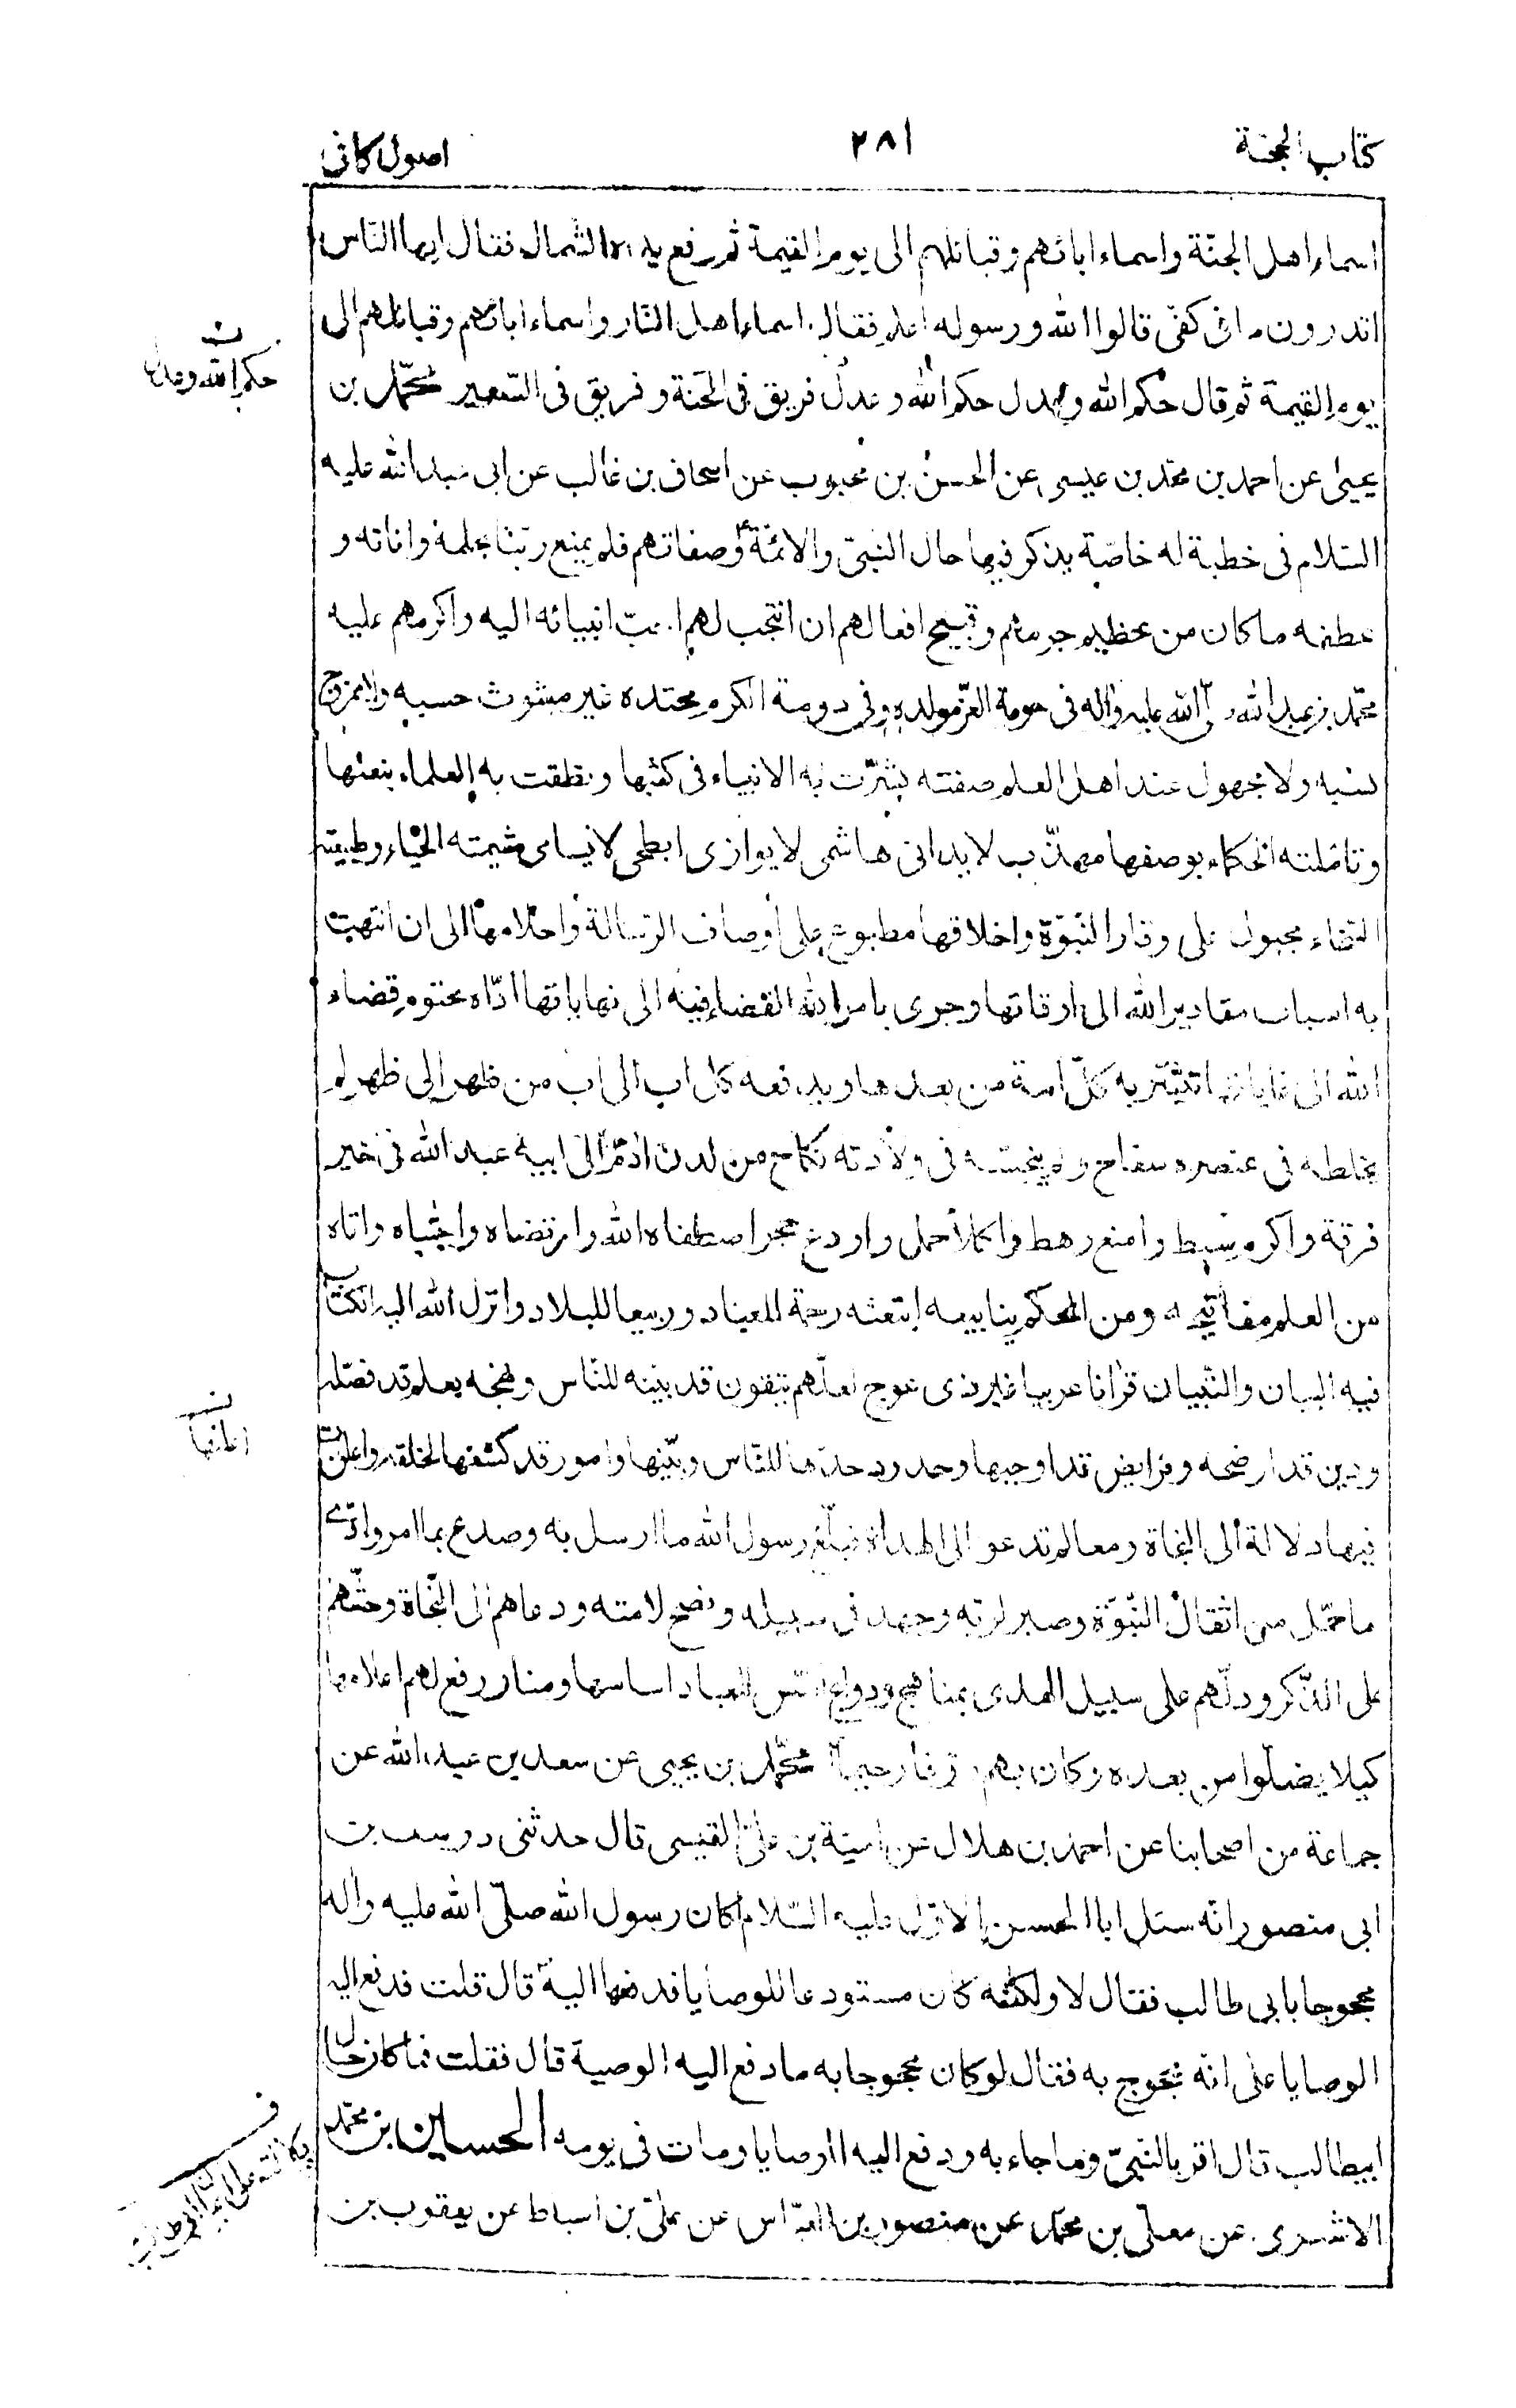 كتاب الحجة
٢٨١
اصول كافى
اسماء اهل الجنّة واسماء ابائهم وقبائلهم الى يوم القيمة ثم رفع يده الشمال فقال ايها النّاس
اتدرون ما فى كفى قالوا الله ورسوله اعلم فقال اسماء اهل النّار واسماء ابائهم وقبائلهم الى
يوم القيمة ثم قال حكم الله وعدل حكم الله وعدل فريق فى الجنة وفريق فى السّعير محمّد بن
يحيى عن احمد بن محمّد بن عيسى عن الحسن بن محبوب عن اسحاق بن غالب عن ابى عبد الله عليه
السّلام فى خطبة له خاصّة يذكر فيها حال النبىّ والائمّة ع وصفاتهم فلم يمنع ربّنا بحلمه واناته و
عطفه ما كان من عظيم جرمهم وقبيح افعالهم ان انتجب لهم احبّ انبيائه اليه واكرمهم عليه
محمّد بن عبد الله صلّى الله عليه واله فى حومة العزّ مولده وفى دومة الكرم محتده غير مشوب حسبه ولا ممزوج
نسبه ولا مجهول عند اهل العلم صفته بشّرت به الانبياء فى كتبها ونطقت به العلماء بنعتها
وتامّلته الحكماء بوصفها مهذّب لا يدانى هاشمى لا يوازى ابطحى لا يسامى شيمته الحياء وطبيعته
السّخاء مجبول على وقار النّبوّة واخلاقها مطبوع على اوصاف الرّسالة واحلامها الى ان انتهت
به اسباب مقادير الله الى اوقاتها وجرى بامر الله القضاء فيه الى نهاياتها ادّاه محتوم قضاء
الله الى غاياتها تبشّر به كلّ امة من بعدها ويدفعه كل اب الى اب من ظهر الى ظهر لم
يخلطه فى عنصره سفاح ولم ينجّسه فى ولادته نكاح من لدن ادم الى ابيه عبد الله فى خير
فرقة واكرم سبط وامنع رهط واكلأ حمل واودع حجر اصطفاه الله وارتضاه واجتباه واتاه
من العلم مفاتيحه ومن الحكم ينابيعه ابتعثه رحمة للعباد وربيعا للبلاد وانزل الله اليه الكتاب
فيه البيان والتّبيان قرانا عربيا غير ذى عوج لعلّهم يتقون قد بيّنه للنّاس ونهجه بعلم قد فصّله
ودين قد اوضحه وفرايض قد اوجبها وحدود حدّها للنّاس وبيّنها وامور قد كشفها لخلقه واعلن
فيها دلالة الى النجاة ومعالم تدعو الى الهداة فبلّغ رسول الله ما ارسل به وصدع بما امر وادّى
ما حمّل من اثقال النّبوّة وصبر لربّه وجهد فى سبيله ونصح لامته ودعاهم الى النّجاة وحثّهم
على الذّكر ودلّهم على سبيل الهدى بمناهج ودواع اسّس للعباد اساسها ومنار رفع لهم اعلامها
كيلا يضلّوا من بعده وكان بهم رؤفا رحيما محمّد بن يحيى عن سعد بن عبد الله عن
جماعة من اصحابنا عن احمد بن هلال عن امية بن علىّ القيسى قال حدثنى درست بن
ابى منصور انّه سئل ابا الحسن الاوّل عليه السّلام أكان رسول الله صلّى الله عليه واله
محجوجا بابى طالب فقال لا ولكنّه كان مستودعا للوصايا فدفعها اليه قال قلت فدفع اليه
الوصايا على انّه محجوج به فقال لو كان محجوجا به ما دفع اليه الوصية قال فقلت فما كان حال
ابيطالب قال اقر بالنّبىّ وما جاء به ودفع اليه الوصايا ومات فى يومه الحسين بن محمّد
الاشعرى عن معلّى بن محمّد عن منصور بن العبّاس عن علىّ بن اسباط عن يعقوب بن
حكم الله وعدل